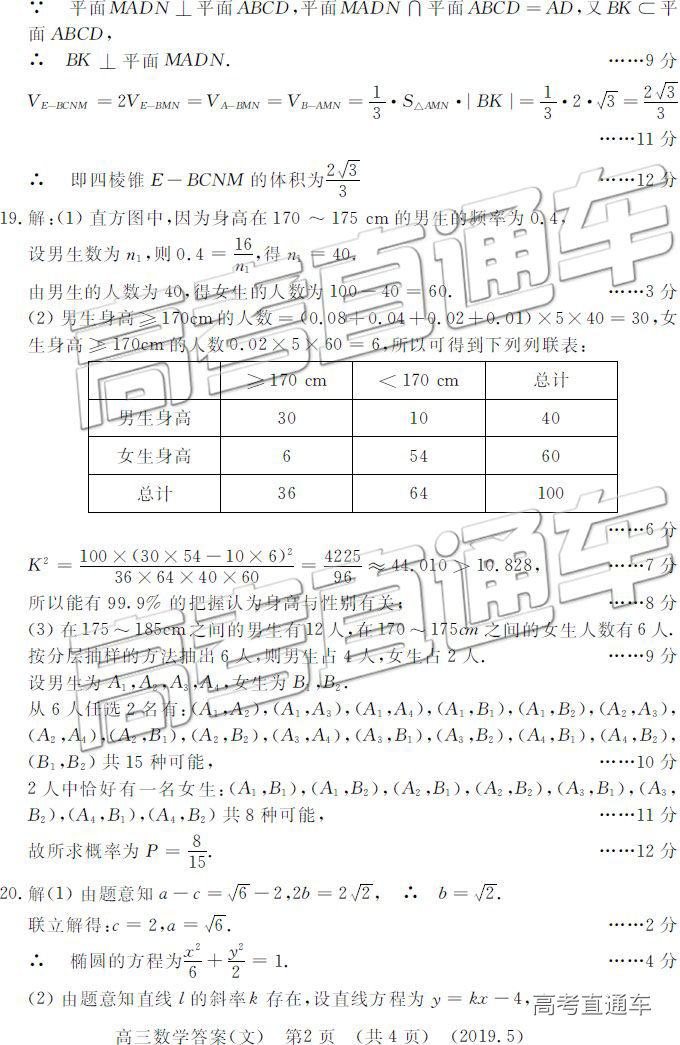 ∵ 平面MADN⊥平面ABCD,平面MADN∩平面ABCD=AD,又BK⊂平
面ABCD,
∴ BK⊥平面MADN. ……9分
V_{E-BCNM}=2V_{E-BMN}=V_{A-BMN}=V_{B-AMN}=1/3·S_{△AMN}·|BK|=1/3·2·√3=2√3/3
……11分
∴ 即四棱锥E-BCNM的体积为2√3/3 ……12分
19.解:(1)直方图中,因为身高在170～175 cm的男生的频率为0.4,
设男生数为n₁,则0.4=16/n₁,得n₁=40.
由男生的人数为40,得女生的人数为100-40=60. ……3分
(2)男生身高≥170cm的人数=(0.08+0.04+0.02+0.01)×5×40=30,女
生身高≥170cm的人数0.02×5×60=6,所以可得到下列列联表:
≥170 cm <170 cm 总计
男生身高 30 10 40
女生身高 6 54 60
总计 36 64 100
……6分
K²=100×(30×54-10×6)²/36×64×40×60=4225/96≈44.010>10.828, ……7分
所以能有99.9%的把握认为身高与性别有关; ……8分
(3)在175～185cm之间的男生有12人,在170～175cm之间的女生人数有6人.
按分层抽样的方法抽出6人,则男生占4人,女生占2人. ……9分
设男生为A₁,A₂,A₃,A₄,女生为B₁,B₂.
从6人任选2名有:(A₁,A₂),(A₁,A₃),(A₁,A₄),(A₁,B₁),(A₁,B₂),(A₂,A₃),
(A₂,A₄),(A₂,B₁),(A₂,B₂),(A₃,A₄),(A₃,B₁),(A₃,B₂),(A₄,B₁),(A₄,B₂),
(B₁,B₂)共15种可能, ……10分
2人中恰好有一名女生:(A₁,B₁),(A₁,B₂),(A₂,B₁),(A₂,B₂),(A₃,B₁),(A₃,
B₂),(A₄,B₁),(A₄,B₂)共8种可能, ……11分
故所求概率为P=8/15. ……12分
20.解(1)由题意知a-c=√6-2,2b=2√2, ∴ b=√2.
联立解得:c=2,a=√6. ……2分
∴ 椭圆的方程为x²/6+y²/2=1. ……4分
(2)由题意知直线l的斜率k存在,设直线方程为y=kx-4,
高考直通车
高三数学答案(文) 第2页 (共4页) (2019.5)
高考直通车
高考直通车